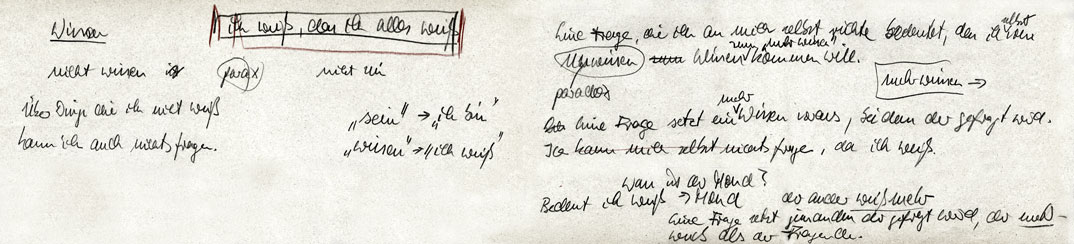 Wissen
ich weiß, dass ich alles weiß
nicht wissen parax nicht
Über Dinge die ich nicht weiß
kann ich auch nichts fragen.
„sein" → „ich bin"
„wissen" → „ich weiß
Eine Frage, die ich an mich selbst richte bedeutet, dass ich selbst vom
Unwissen zum „mehr wissen"
Wissen kommen will.
paradox
mehr wissen →
Eine Frage setzt ein mehr Wissen voraus, bei dem der gefragt wird.
Ich kann mich selbst nichts fragen, da ich weiß.
Was ist der Mond?
Bedeut ich weiß → Mond der andere weiß mehr
Eine Frage setzt jemanden der gefragt wird, der mehr
weiß als der Fragende.